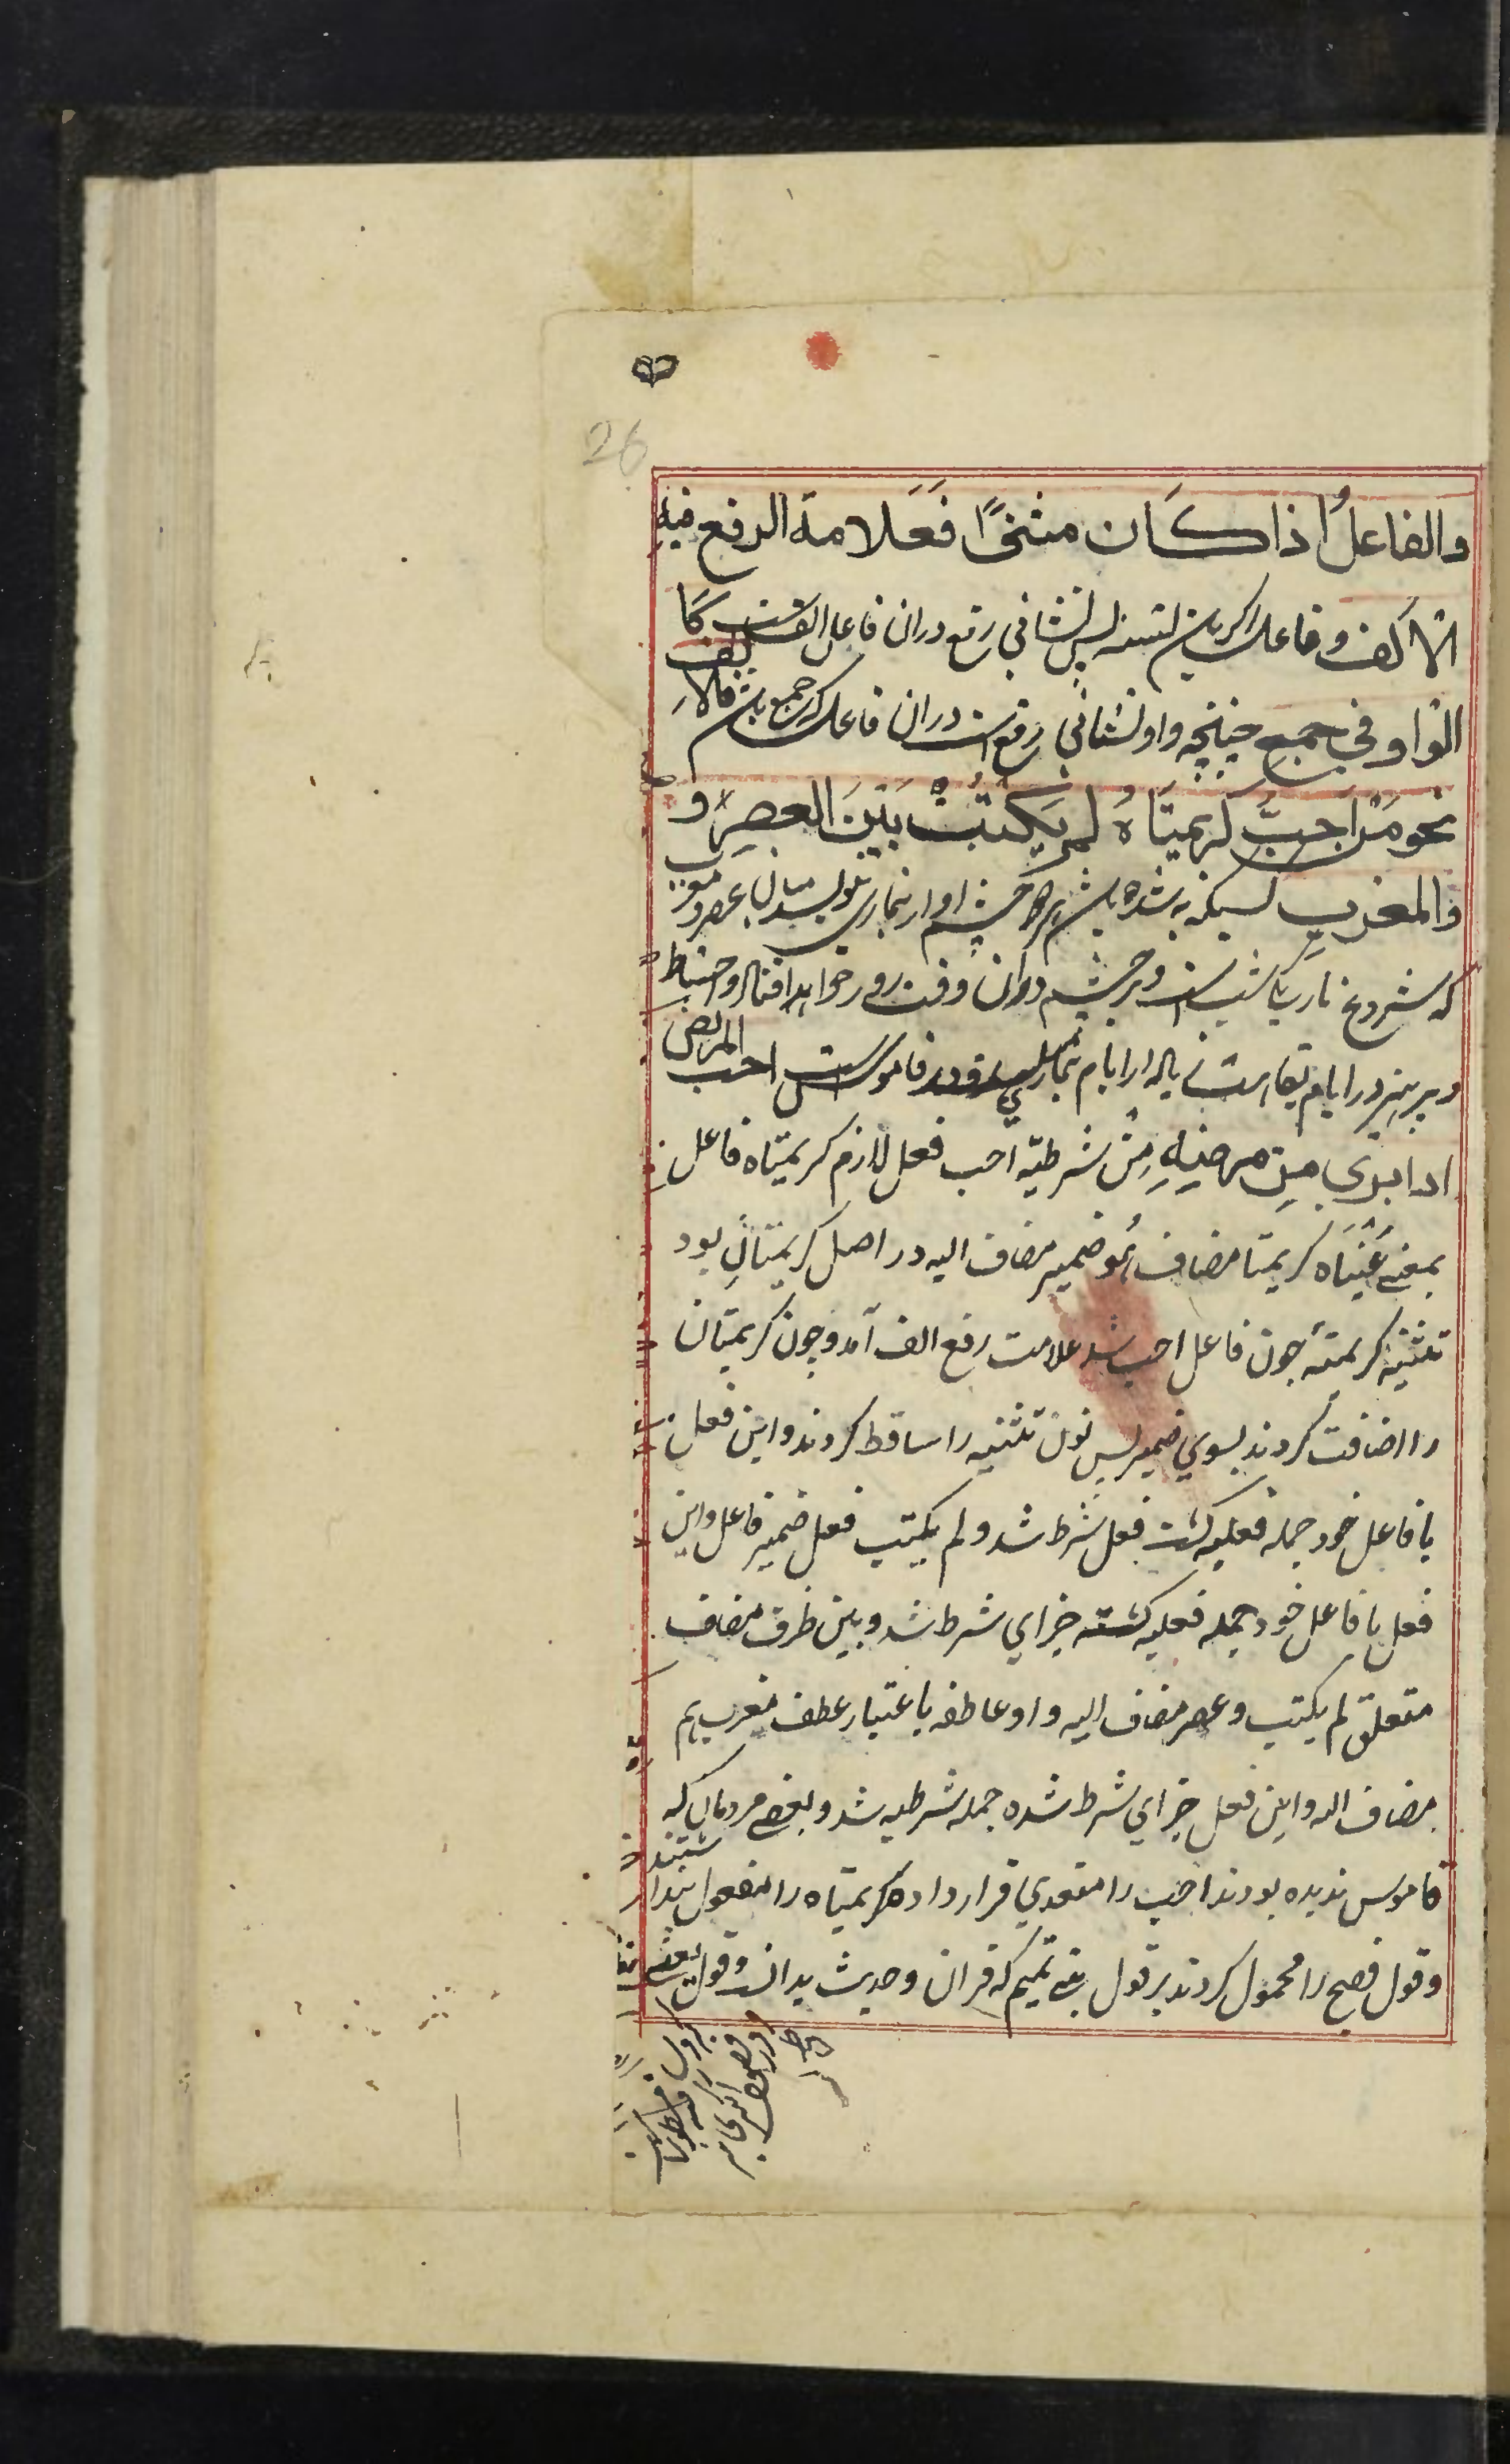 26
والفاعلُ اذا كَان مثنىً فعَلامة الرفع فیهِ
الالف و فاعل اگر باشد تثنیه پس نشانی رفع دران فاعل الف است كَمَا
الواو فی جمع چنانچه واو نشانی رفع است دران فاعل که جمع باشد
نحو مَنْ اَحَبَّ كريمتَاهُ لم يَكتُبْ بَيْنَ العصرِ و
والمغربِ
که شروع تاریکی شب است و بر چشم دران وقت زور خواهد افتاد و احتیاط
و پرهیز در ایام نقاهت یا بعد از ایام بیماری در قاموس است احب المريض
اذا ابرئ مِن مرضِهِ مَنْ شرطیة احب فعل لازم کریمتاه فاعل
بمعنی عَيْنَاه کریمتا مضاف هُو ضمیر مضاف الیه در اصل کریمتانِ بود
تثنیه کریمة چون فاعل احب شد علامت رفع الف آمد و چون کریمتان
را اضافت کردند بسوی ضمیر پس نون تثنیه را ساقط کردند و این فعل
با فاعل خود جمله فعلیه گشت فعل شرط شد و لم یکتب فعل ضمیر فاعل و این
فعل با فاعل خود جمله فعلیه گشته جزای شرط شد و بین ظرف مضاف
متعلق لم یکتب و عصر مضاف الیه واو عاطفه باعتبار عطف مغرب هم
مضاف الیه و این فعل جزای شرط شده جمله شرطیه شد و بعضی مردمان که
قاموس ندیده بودند احب را متعدی قرار داده کریمتاه را مفعول پنداشتند
و قول فصیح را محمول کردند بر قول بنی تمیم که قران و حدیث بدان